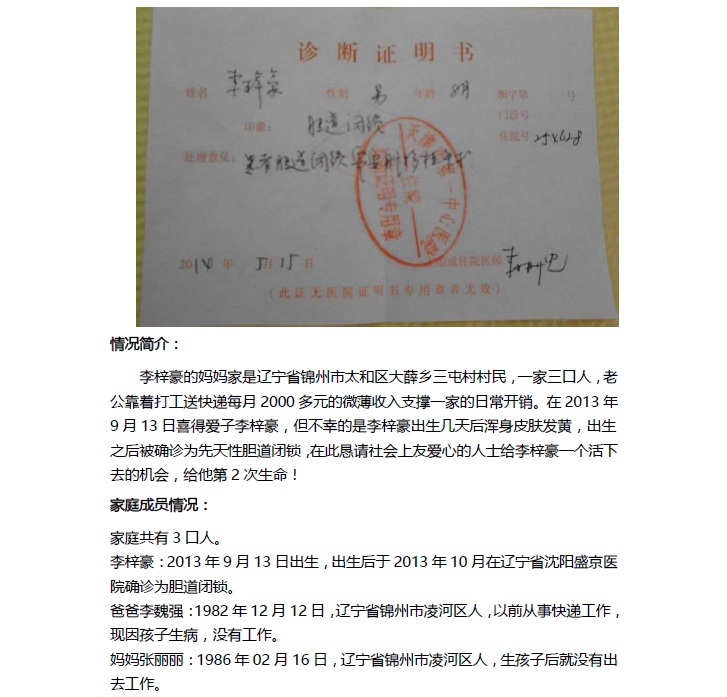 诊断证明书
姓名 李梓豪 性别 男 年龄 8月 断字第 号
门诊号
印象: 胆道闭锁 住院号 254628
处理意见: 患者胆道闭锁 需要肝移植手术
天津市第一中心医院
住院
诊断证明专用章
2014年 5月15日 主治或住院医师
(此证无医院证明书专用章者无效)
情况简介:
李梓豪的妈妈家是辽宁省锦州市太和区大薛乡三屯村村民,一家三口人,老
公靠着打工送快递每月 2000 多元的微薄收入支撑一家的日常开销。在 2013 年
9 月 13 日喜得爱子李梓豪,但不幸的是李梓豪出生几天后浑身皮肤发黄,出生
之后被确诊为先天性胆道闭锁,在此恳请社会上友爱心的人士给李梓豪一个活下
去的机会,给他第 2 次生命!
家庭成员情况:
家庭共有 3 口人。
李梓豪:2013 年 9 月 13 日出生,出生后于 2013 年 10 月在辽宁省沈阳盛京医
院确诊为胆道闭锁。
爸爸李魏强:1982 年 12 月 12 日,辽宁省锦州市凌河区人,以前从事快递工作,
现因孩子生病,没有工作。
妈妈张丽丽:1986 年 02 月 16 日,辽宁省锦州市凌河区人,生孩子后就没有出
去工作。